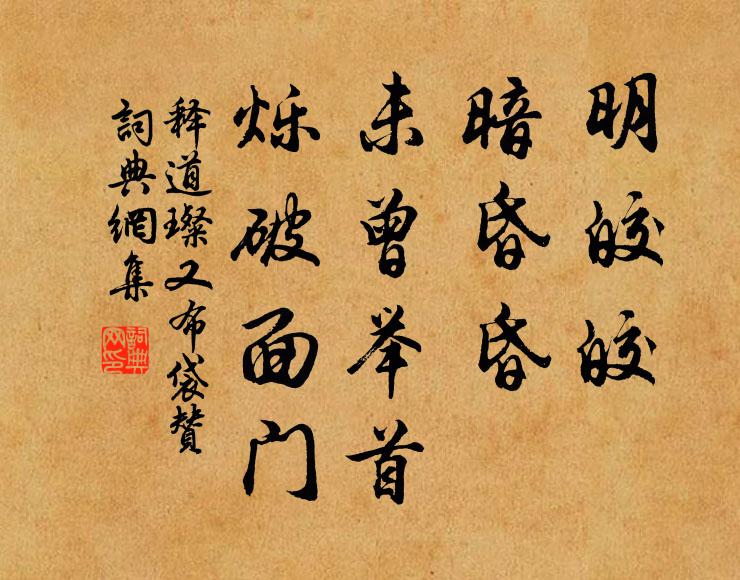 明皎皎
暗昏昏
未曾举首
烁破面门
释道璨又布袋赞
詞典網集
詞典網印